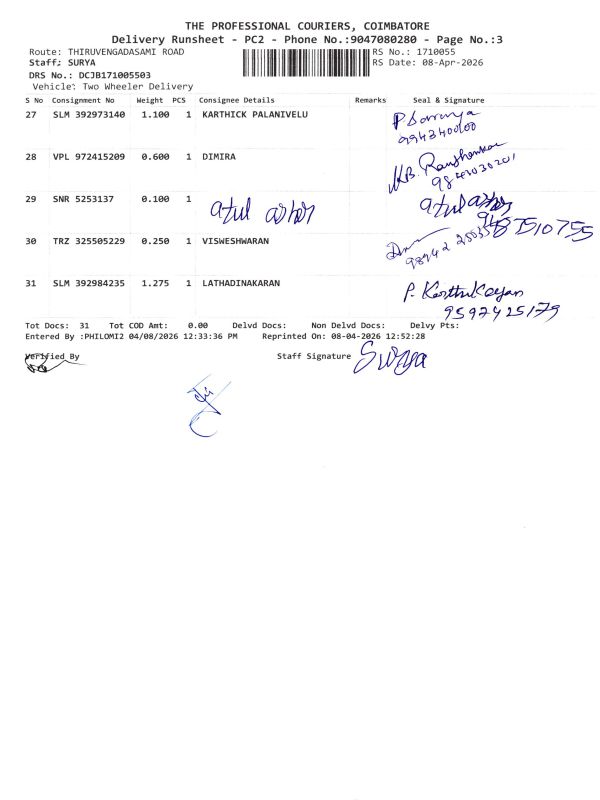 THE PROFESSIONAL COURIERS, COIMBATORE
Delivery Runsheet - PC2 - Phone No.:9047080280 - Page No.:3
Route: THIRUVENGADASAMI ROAD RS No.: 1710055
Staff; SURYA RS Date: 08-Apr-2026
DRS No.: DCJB171005503
Vehicle: Two Wheeler Delivery
S No Consignment No Weight PCS Consignee Details Remarks Seal & Signature
27 SLM 392973140 1.100 1 KARTHICK PALANIVELU P. Saranya
9943400600
28 VPL 972415209 0.600 1 DIMIRA
29 SNR 5253137 0.100 1 atul
atul
30 TRZ 325505229 0.250 1 VISWESHWARAN
31 SLM 392984235 1.275 1 LATHADINAKARAN P. Karthikeyan
9597425179
Tot Docs: 31 Tot COD Amt: 0.00 Delvd Docs: Non Delvd Docs: Delvy Pts:
Entered By :PHILOMI2 04/08/2026 12:33:36 PM Reprinted On: 08-04-2026 12:52:28
Verified By Staff Signature Surya